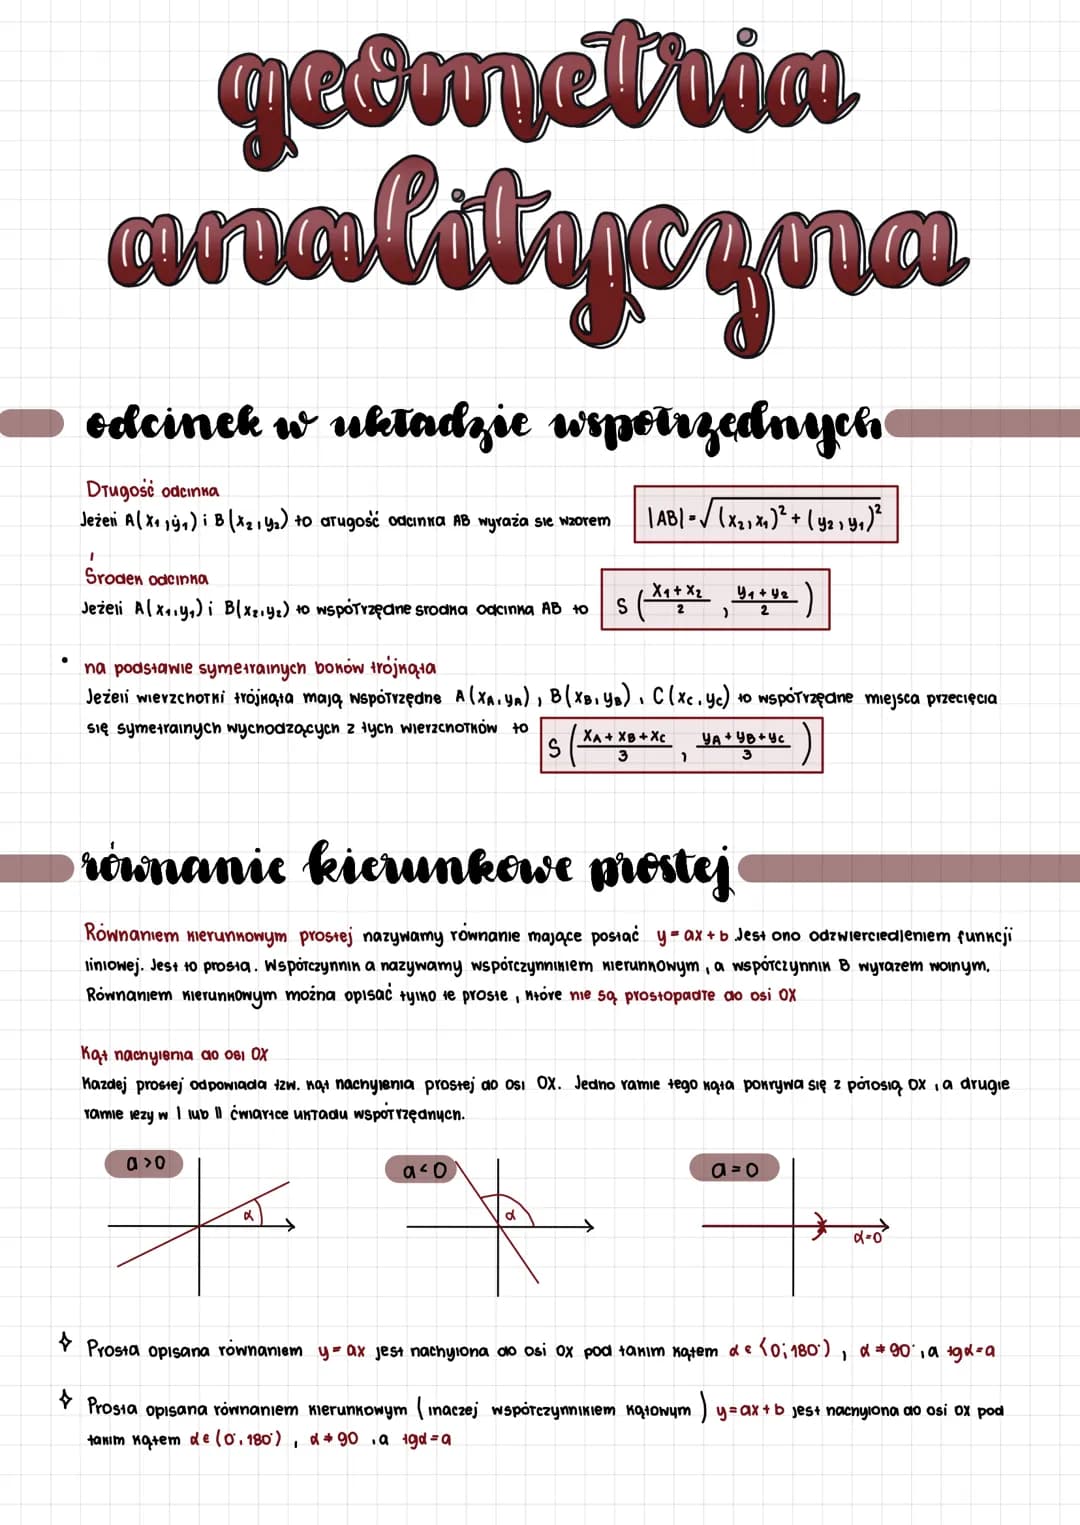 geometria
analityczna
odcinek w układzie współrzędnych
Długość odcinka
Jeżeli A(x₁,y₁) i B(x₂,y₂) to długość odcinka AB wyraża się wzorem |AB|=√(x₂,x₁)²+(y₂,y₁)²
Środek odcinka
Jeżeli A(x₁,y₁) i B(x₂,y₂) to współrzędne środka odcinka AB to S(x₁+x₂/2, y₁+y₂/2)
• na podstawie symetralnych boków trójkąta
Jeżeli wierzchołki trójkąta mają współrzędne A(xA,yA), B(xB,yB), C(xC,yC) to współrzędne miejsca przecięcia
się symetralnych wychodzących z tych wierzchołków to S(xA+xB+xC/3, yA+yB+yC/3)
równanie kierunkowe prostej
Równaniem kierunkowym prostej nazywamy równanie mające postać y=ax+b. Jest ono odzwierciedleniem funkcji
liniowej. Jest to prosta. Współczynnik a nazywamy współczynnikiem kierunkowym, a współczynnik B wyrazem wolnym.
Równaniem kierunkowym można opisać tylko te proste, które nie są prostopadłe do osi OX
Kąt nachylenia do osi OX
Każdej prostej odpowiada tzw. kąt nachylenia prostej do osi OX. Jedno ramie tego kąta pokrywa się z półosią OX, a drugie
ramie leży w I lub II ćwiartce układu współrzędnych.
a>0 a<0 a=0
α α α=0
✧ Prosta opisana równaniem y=ax jest nachylona do osi OX pod takim kątem α∈⟨0°;180°), α≠90°, a tgα=a
✧ Prosta opisana równaniem kierunkowym (inaczej współczynnikiem kątowym) y=ax+b jest nachylona do osi OX pod
takim kątem α∈(0°,180°), α≠90, a tgα=a